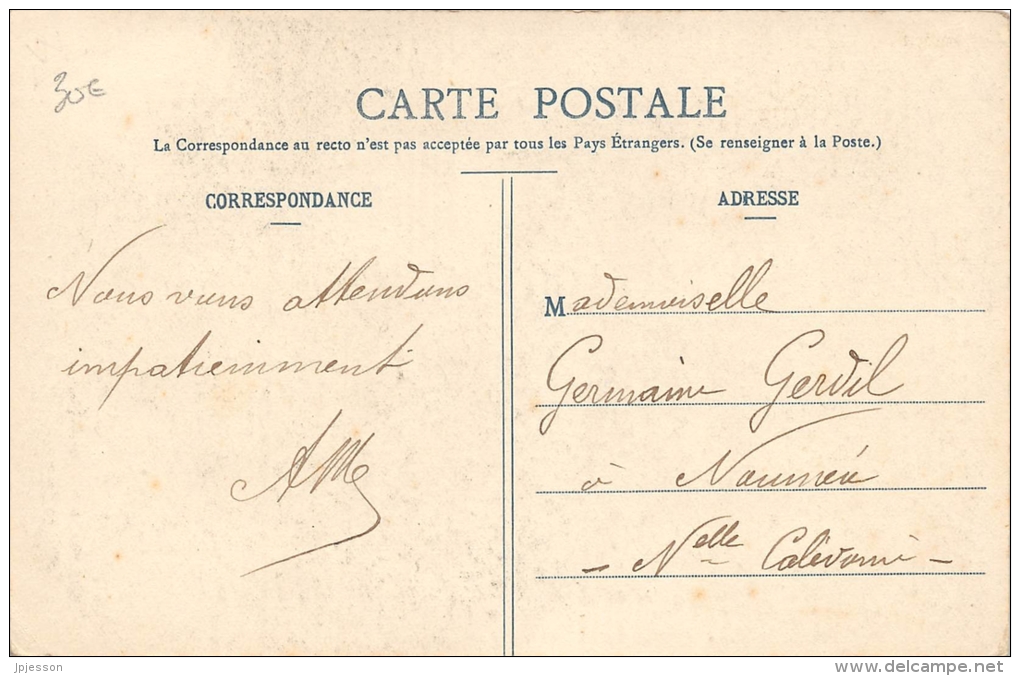 30€
CARTE POSTALE
La Correspondance au recto n'est pas acceptée par tous les Pays Étrangers. (Se renseigner à la Poste.)
CORRESPONDANCE
Nous vous attendons
impatiemment
AM
ADRESSE
Mademoiselle
Germaine Gervil
à Nouméa
- Nelle Calédonie -
jpjesson
www.delcampe.net